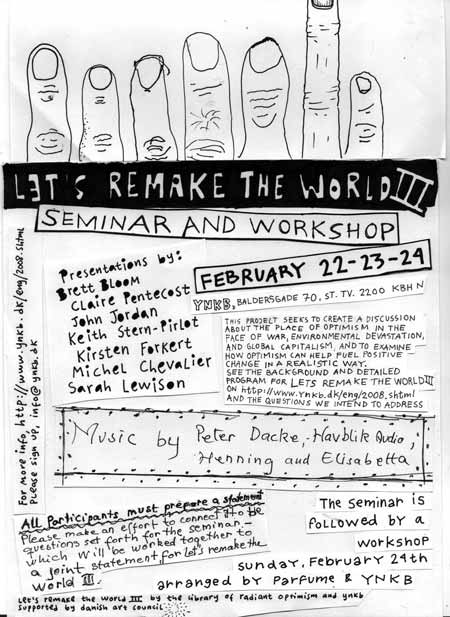 LET'S REMAKE THE WORLD III
SEMINAR AND WORKSHOP
Presentations by:
Brett Bloom
Claire Pentecost
John Jordan
Keith Stern-Pirlot
Kirsten Forkert
Michel Chevalier
Sarah Lewison
FEBRUARY 22-23-24
YNKB, BALDERSGADE 70, ST. TV. 2200 KBH N
THIS PROJECT SEEKS TO CREATE A DISCUSSION
ABOUT THE PLACE OF OPTIMISM IN THE
FACE OF WAR, ENVIRONMENTAL DEVASTATION,
AND GLOBAL CAPITALISM, AND TO EXAMINE
HOW OPTIMISM CAN HELP FUEL POSITIVE
CHANGE IN A REALISTIC WAY.
SEE THE BACKGROUND AND DETAILED
PROGRAM FOR LETS REMAKE THE WORLD III
ON http://www.ynkb.dk/eng/2008.shtml
AND THE QUESTIONS WE INTEND TO ADDRESS
For more info, http://www.ynkb.dk/eng/2008.shtml
Please sign up, info@ynkb.dk
Music by Peter Dacke, Havblik Audio,
Henning and Elisabetta
All Participants must prepare a statement
Please make an effort to connect it to the
questions set forth for the seminar –
which will be worked together to
a joint statement, for let's remake the
world III.
The Seminar is
followed by a
workshop
sunday, February 24th
arranged by Parfume & YNKB
Let's remake the world III by the library of radiant optimism and ynkb
supported by danish art council